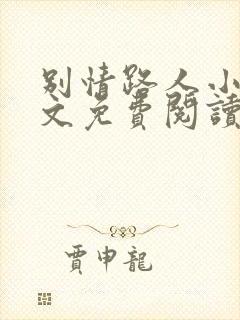 别情路人小
文免費閱讀
賈申龍